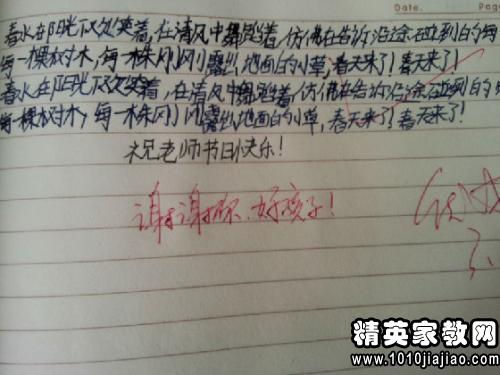 Date. Page
春水在阳光下欢笑着,在清风中舞蹈着,仿佛在告诉沿途碰到的每
每一棵树木,每一株刚刚露出地面的小草,春天来了!春天来了!
春水在阳光下欢笑着,在清风中舞蹈着,仿佛在告诉沿途碰到的每
每一棵树木,每一株刚刚露出地面的小草,春天来了!春天来了!
祝老师节日快乐!
谢谢你,好孩子!
精英家教网
www.1010jiajiao.com